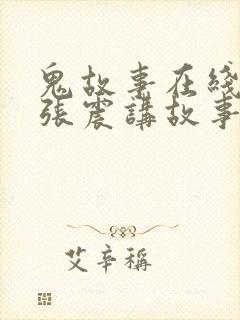 鬼故事在綫
張震講故事
艾辛稱